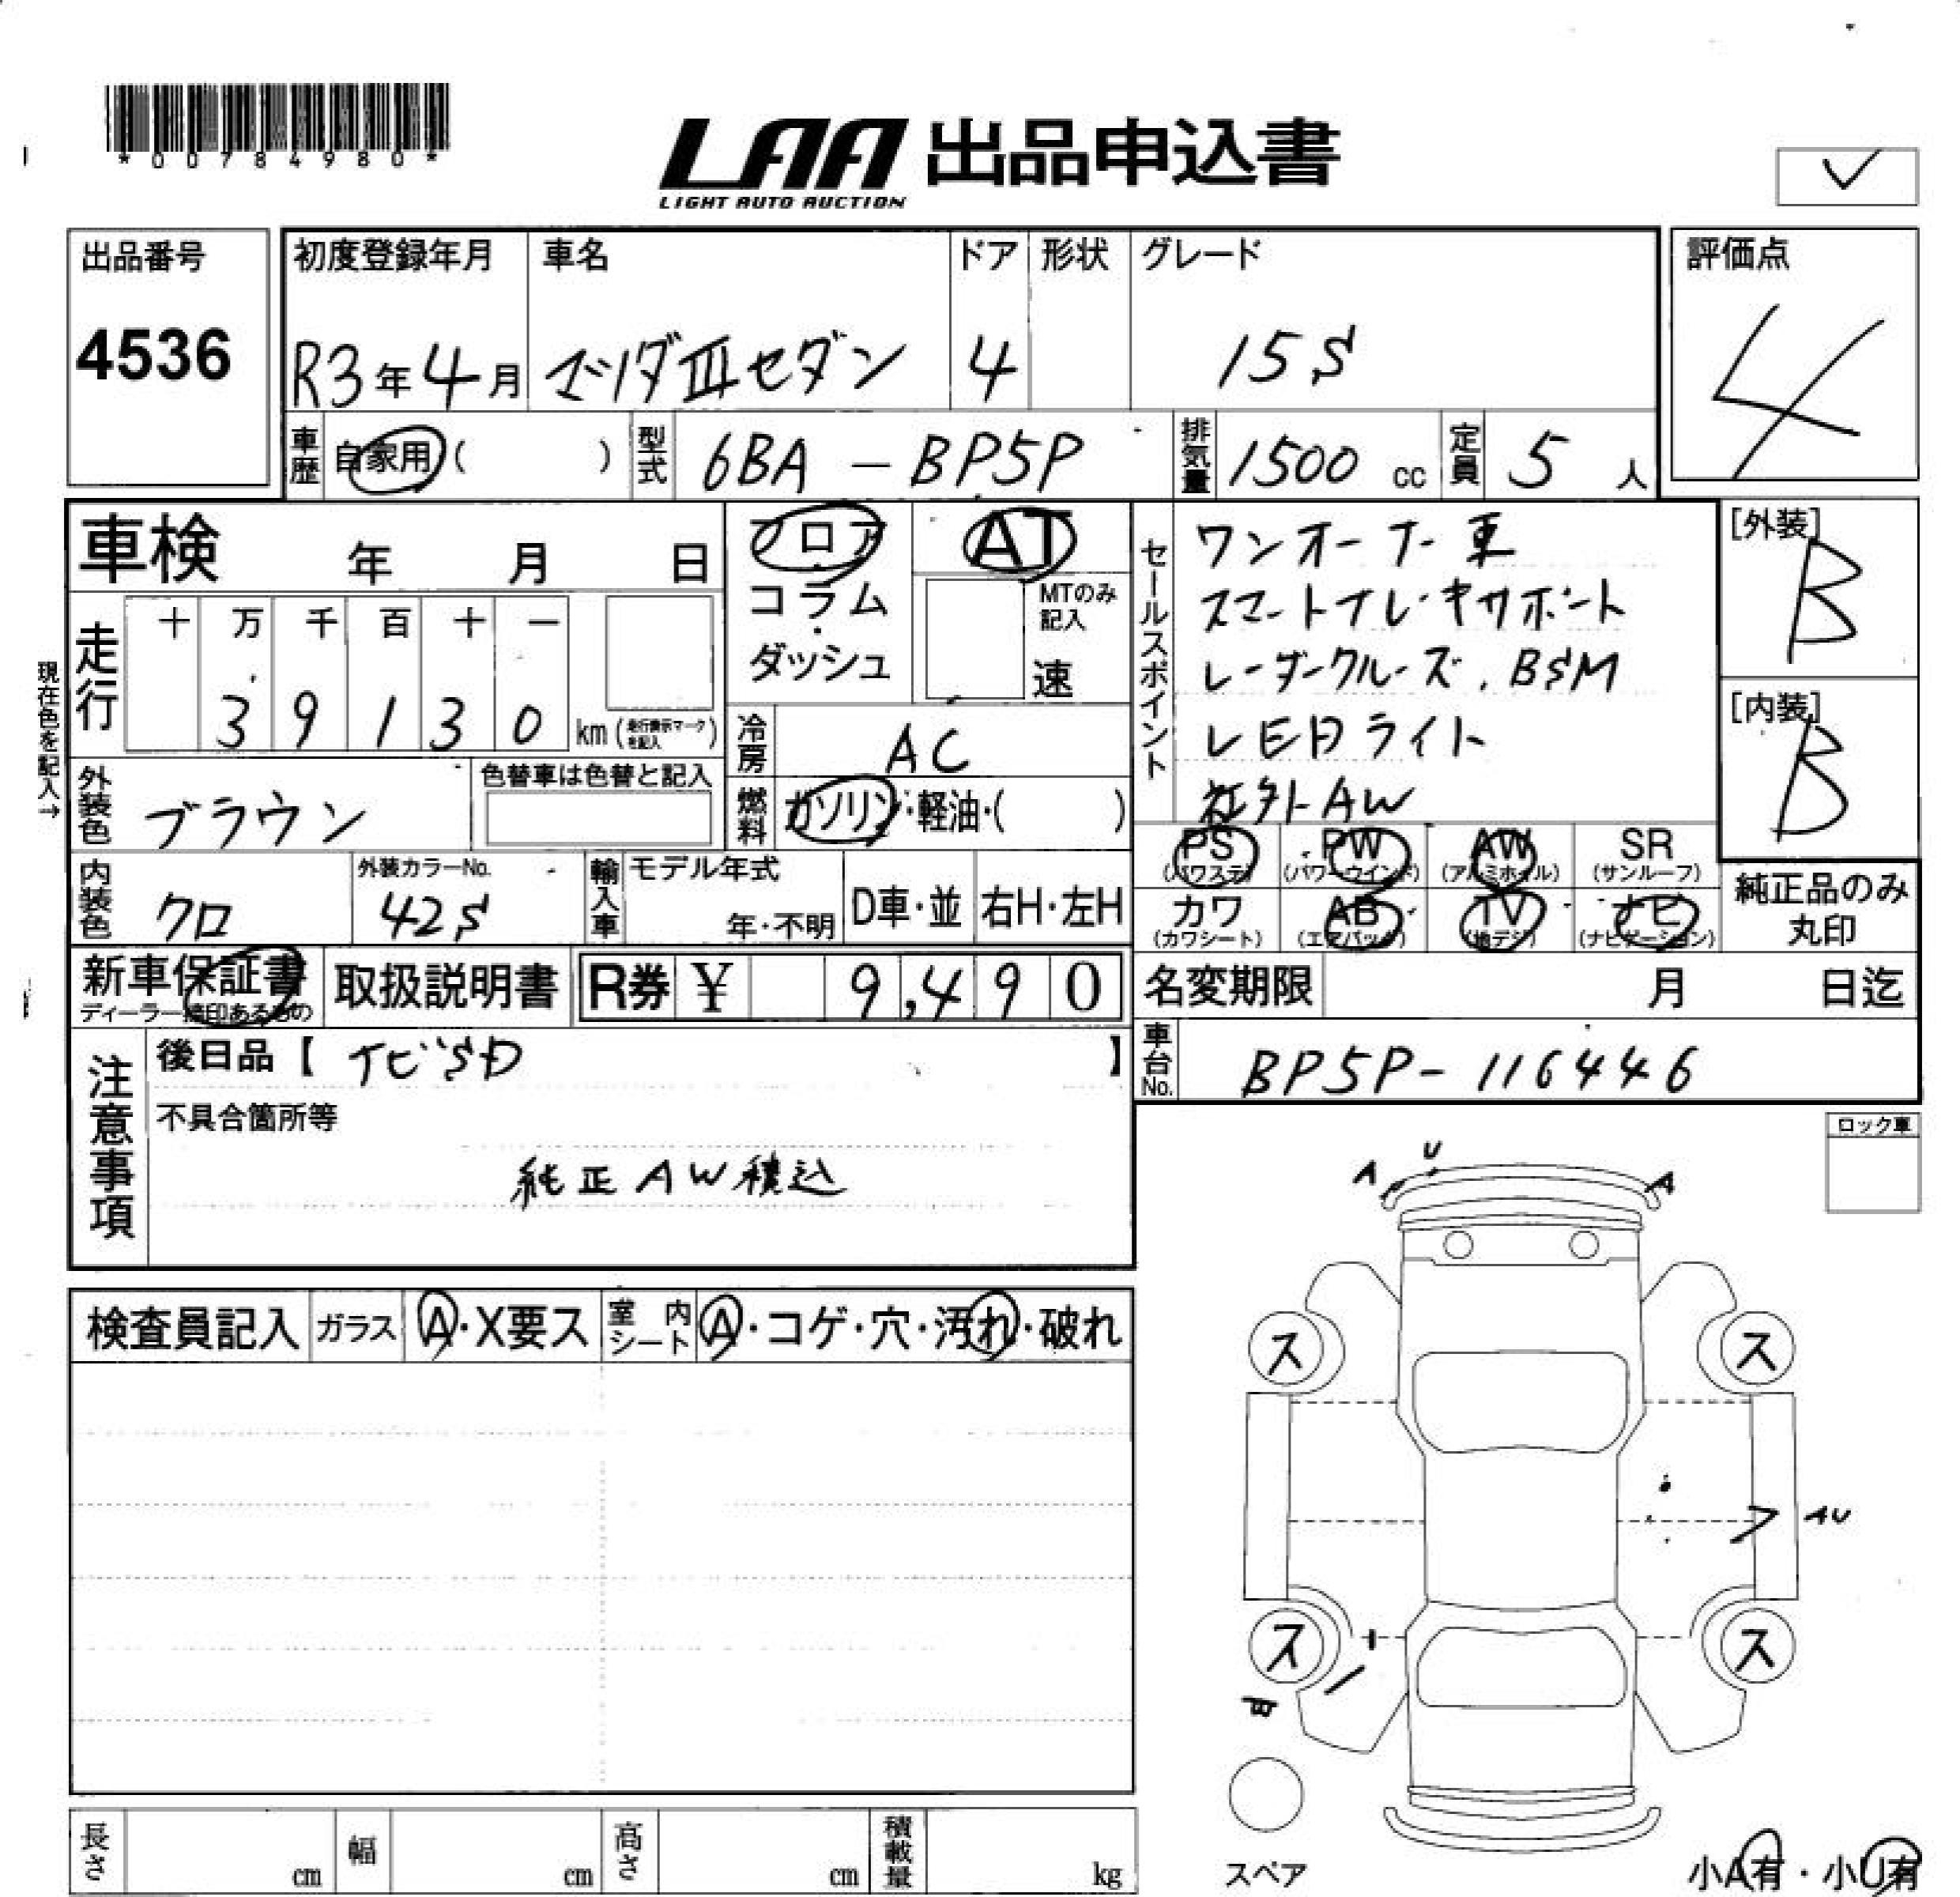 *00784980*
LAA 出品申込書
LIGHT AUTO AUCTION
出品番号
4536
初度登録年月
R3年4月
車名
マツダⅢセダン
ドア
4
形状
グレード
15S
評価点
4
車歴 自家用( )
型式 6BA-BP5P
排気量 1500 cc
定員 5 人
車検 年 月 日
フロア
コラム
ダッシュ
AT
MTのみ
記入
速
セールスポイント
ワンオーナー車
スマートブレーキサポート
レーダークルーズ、BSM
LEDライト
社外AW
[外装]
B
[内装]
B
現在色を記入→
走行
十 万 千 百 十 一
3 9 1 3 0 km(走行表示マークを記入)
冷房 AC
外装色 ブラウン
色替車は色替と記入
燃料 ガソリン・軽油・( )
内装色 クロ
外装カラーNo.
42S
輸入車 モデル年式
年・不明
D車・並 右H・左H
PS (パワステ)
PW (パワーウインド)
AW (アルミホイル)
SR (サンルーフ)
カワ (カワシート)
AB (エアバック)
TV (地デジ)
ナビ (ナビゲーション)
純正品のみ
丸印
新車保証書
ディーラー捺印あるもの
取扱説明書
R券 ¥ 9,490
名変期限 月 日迄
車台No. BP5P-116446
注意事項
後日品【 ナビSD 】
不具合箇所等
純正AW積込
ロック車
検査員記入 ガラス A・X要ス 室内シート A・コゲ・穴・汚れ・破れ
A U A
ス ス
AU
ス ス
B
スペア
小A有・小U有
長さ cm 幅 cm 高さ cm 積載量 kg